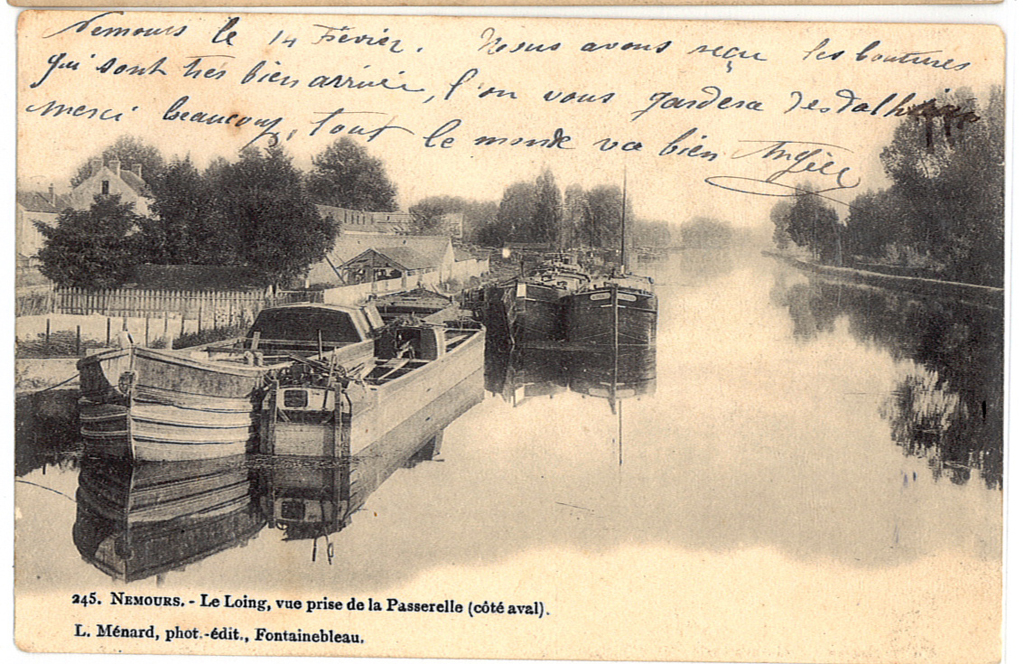 Nemours le 14 Février. Nous avons reçu les boutures
qui sont très bien arrivée, l'on vous gardera des dalhias
merci beaucoup, tout le monde va bien Angèle
245. NEMOURS. - Le Loing, vue prise de la Passerelle (côté aval).
L. Ménard, phot.-édit., Fontainebleau.